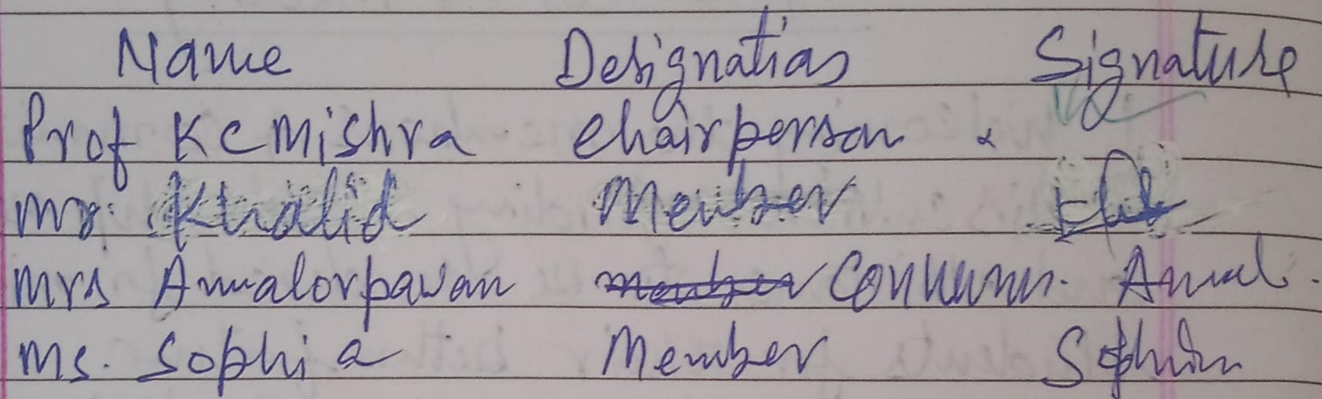 Name Designation Signature
Prof K C Mishra Chairperson
Mr. Khalid Member
Mrs Amalorpavan Member Convenor. Amal.
Ms. Sophia Member Sophia